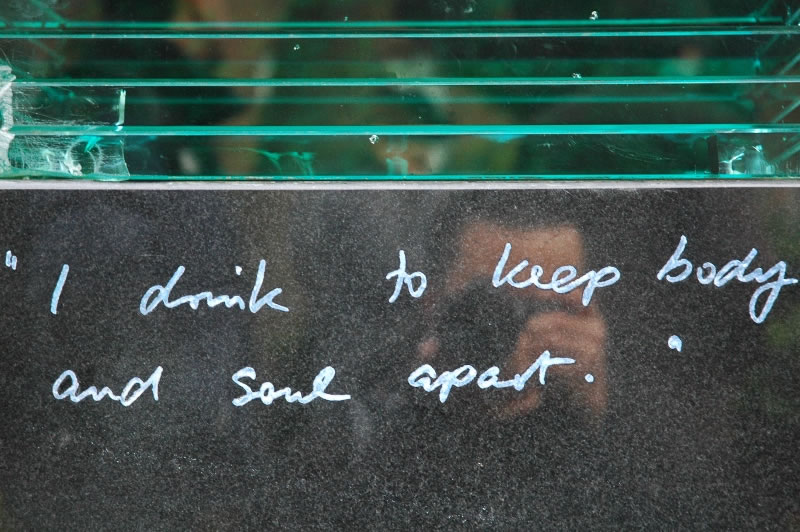 "I drink to keep body
and soul apart."